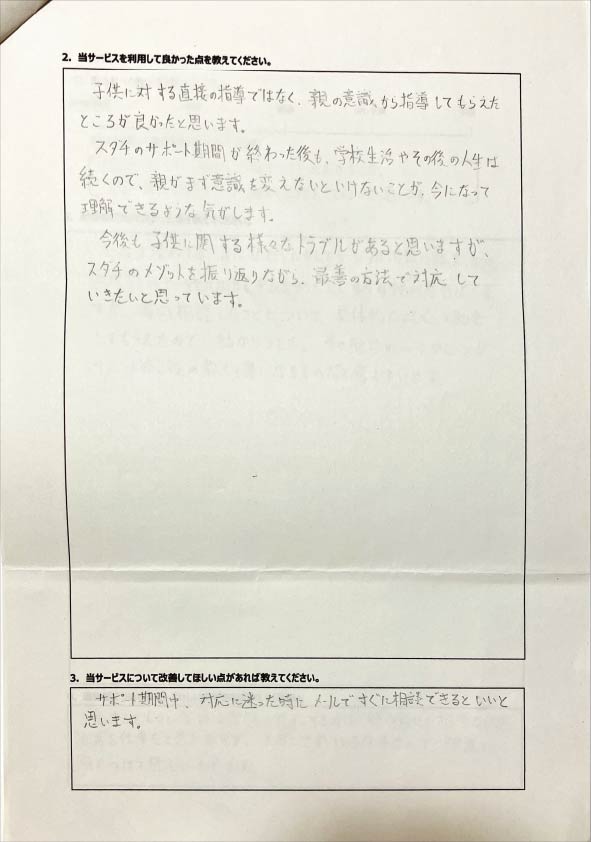 2. 当サービスを利用して良かった点を教えてください。
子供に対する直接の指導ではなく、親の意識から指導してもらえた
ところが良かったと思います。
スダチのサポート期間が終わった後も、学校生活やその後の人生は
続くので、親がまず意識を変えないといけないことが、今になって
理解できるような気がします。
今後も子供に関する様々なトラブルがあると思いますが、
スダチのメゾットを振り返りながら、最善の方法で対応して
いきたいと思っています。
3. 当サービスについて改善してほしい点があれば教えてください。
サポート期間中、対応に迷った時にメールですぐに相談できるといいと
思います。